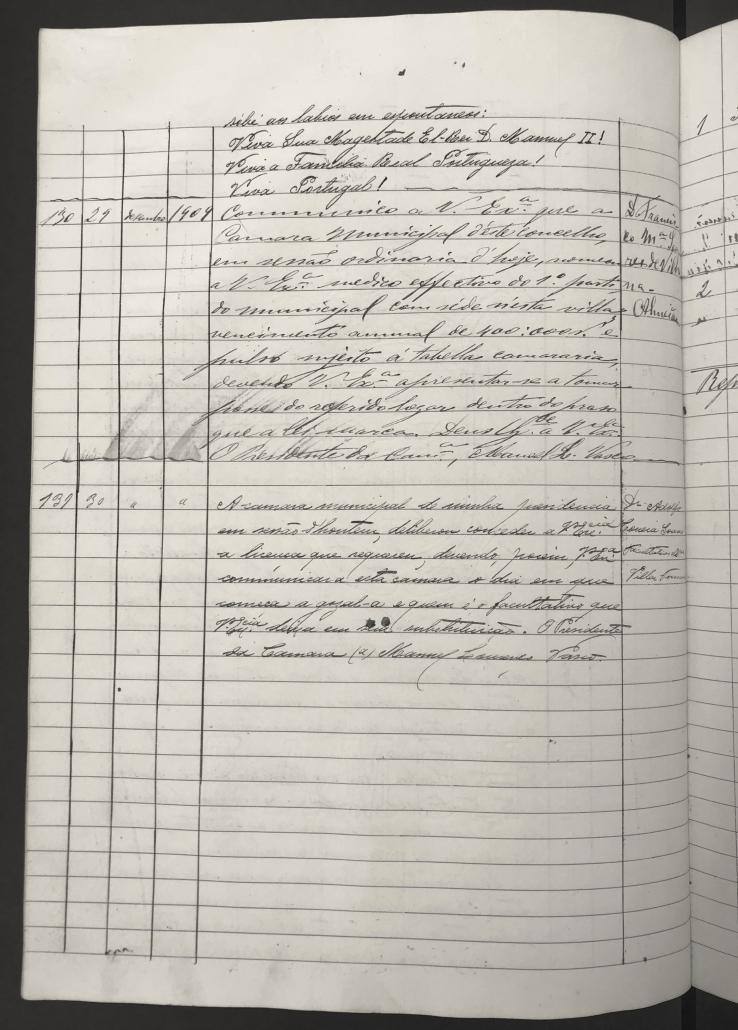 sibe aos labios em espontaneos:
Viva Sua Magestade El-Rei D. Manuel II!
Viva a Familia Real Portugueza!
Viva Portugal!
130 29 dezembro 1909 Communico a V. Exª que a D. Francis-
Camara Municipal d'este concelho, co Mª
em sessão ordinaria d'hoje, nomeou
a V. Exª medico effectivo do 1º parti- na-
do municipal com séde n'esta villa, Almeida
vencimento annual de 400:000rs. e
pulso sujeito á tabella camararia,
devendo V. Exª apresentar-se a tomar
posse do referido logar dentro do praso
que a lei marca. Deus Gde a V. Exª
O Presidente da Camª, Manuel L. Vasco
131 30 " " A camara municipal de minha presidencia Dr. Adolfo
em sessão d'hontem, deliberou conceder a Vª Exciª Correia Soares
a licença que requereu, devendo, porém, Vª Exciª Facultativo
communicar a esta camara o dia em que Villa
começa a gozal-a e quem é o facultativo que
Vª Exciª deixa em sua substituição. O Presidente
da Camara (a) Manuel Vasco.
1
2
Rep